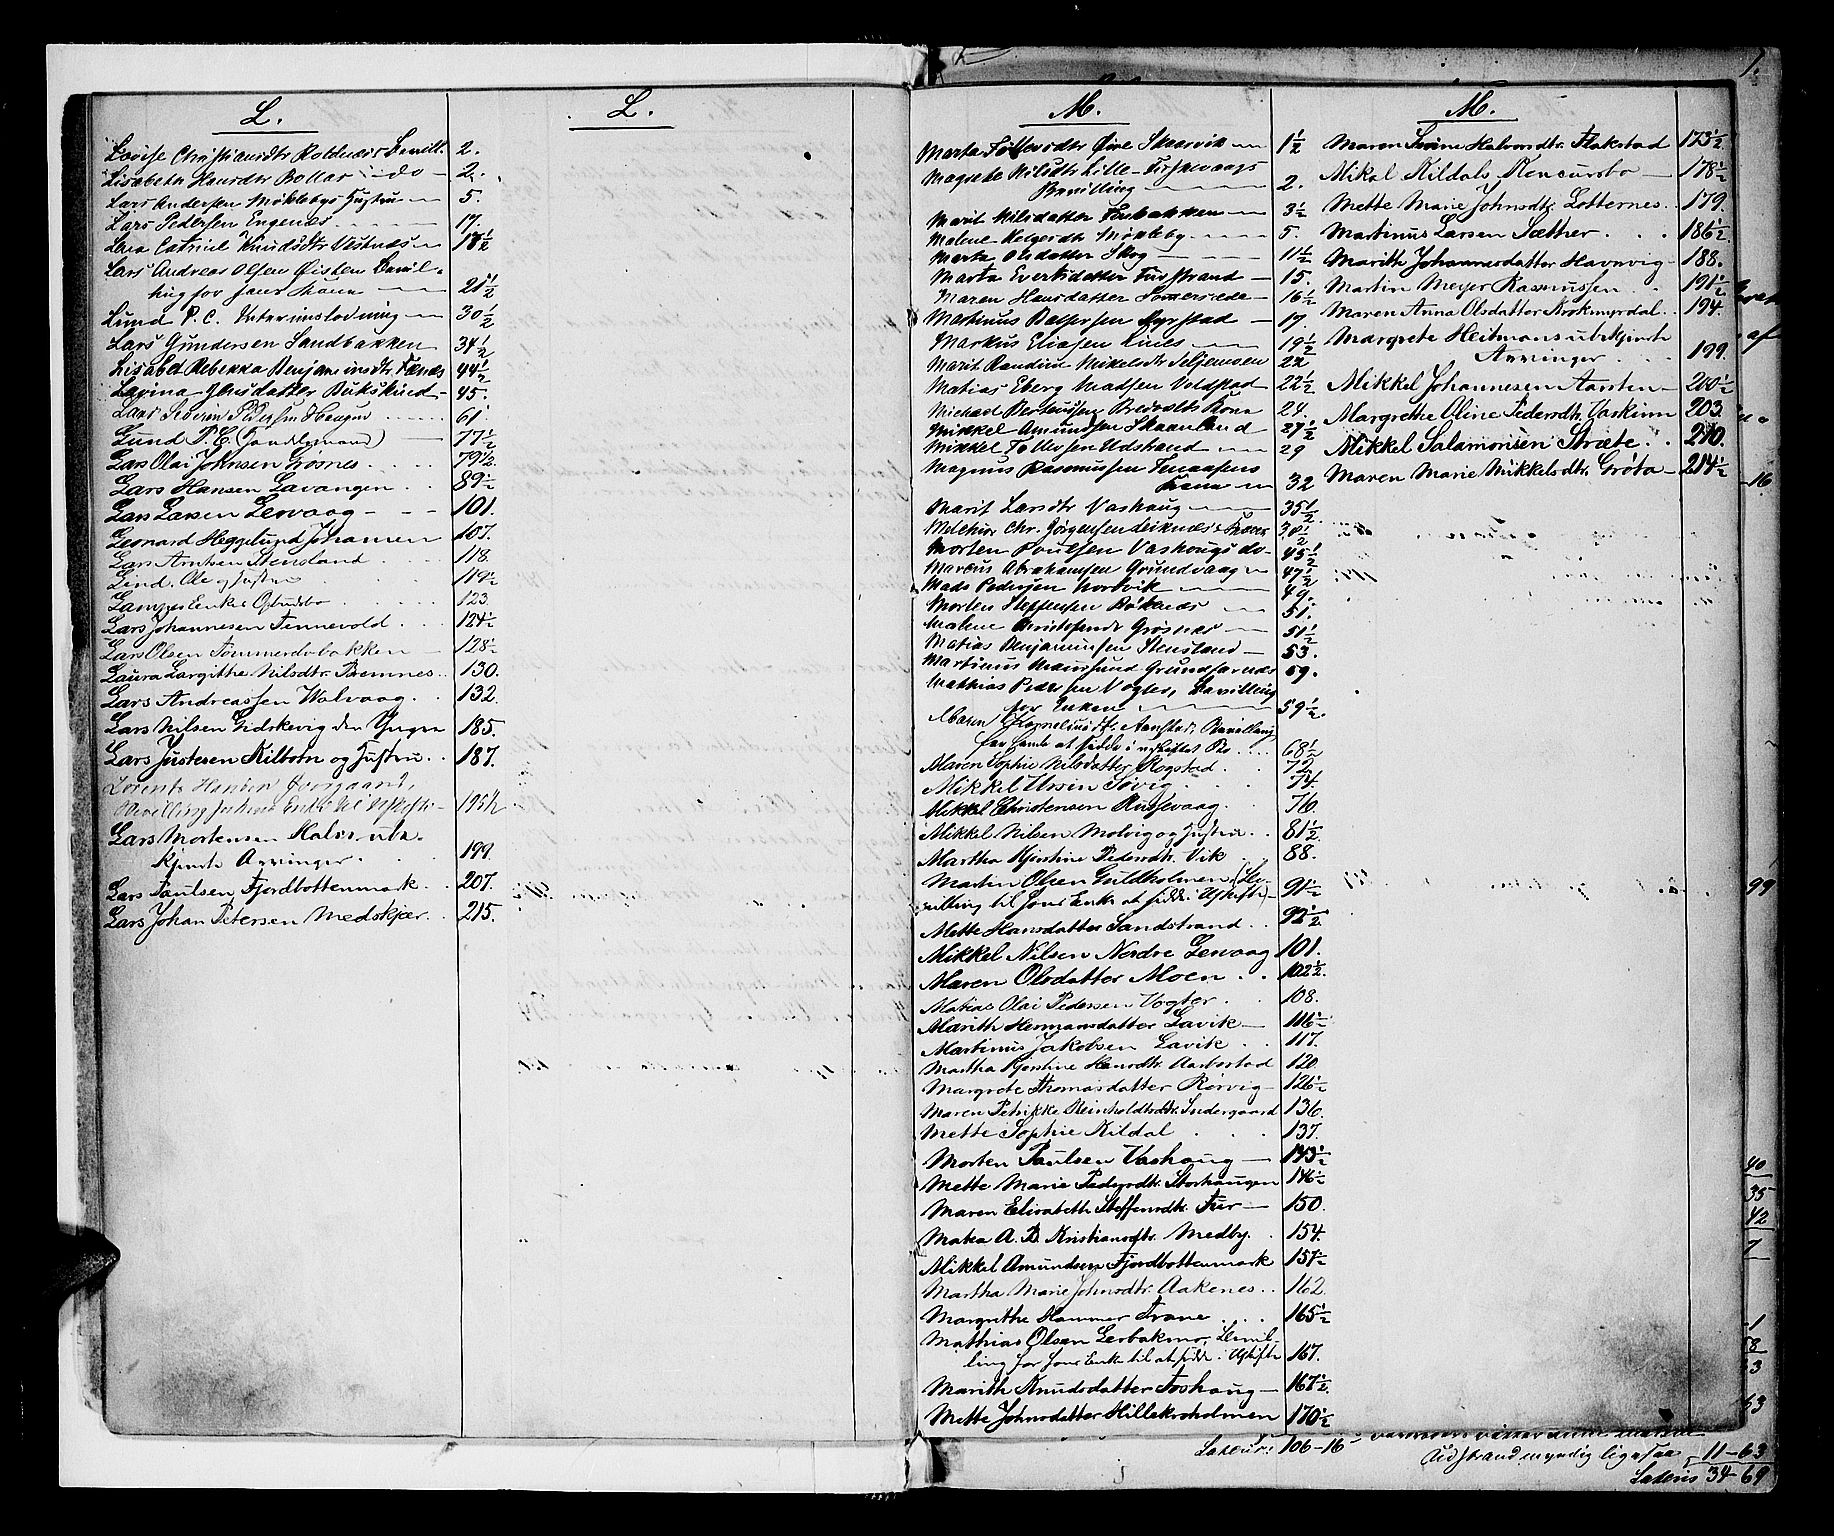 L.
Lovise Christiansdtr Roldnæs Bevill. 2.
Lisabeth Hansdtr Rollas do 2.
Lars Andersen Møklebys Hustru 5.
Lars Pedersen Engenes 17.
Lea Catrine Knudsdtr Vestnæs 18½
Lars Andreas Olsen Øisten Bevil-
ling for hans 21½
Lund P. C. Interimslodning 30½
Lars Gundersen Sandbakken 34½
Lisabet Rebekka Benjaminsdtr Fornes 44½
Lavina Jensdatter Bukskind 45.
Lars Severin Pedersen Haugen 61.
Lund P. C. (Handelsmand) 77½
Lars Olai Johnsen Grøsnes 79½
Lars Hansen Lavangen 89½
Lars Larsen Levaag 101.
Leonard Heggelund Johansen 107.
Lars Arntsen Stensland 118.
Lind, Ole og Hustru 119½
Lampes Enke 123.
Lars Johannesen Tennevold 124½
Lars Olsen Tømmerdobakken 128½
Laura Largithe Nilsdtr. Bremnes 130.
Lars Andreassen Wolvaag 132.
Lars Nilsen Gidskevig den Yngre 185.
Lars Justesen Kilbotn og Hustru 187.
Lorents Hansen Øvergaard,
Bevilling for hans Enke til Uskifte 195½
Lars Mortensen Hals's ube-
kjendte Arvinger 199.
Lars Paulsen Fjordbottenmark 207.
Lars Johan Petersen Medskjær 215.
L.
M.
Marta Tollevsdtr Øvre Skaarvik 1½
Magrete Nilsdtr Lille-Fiskevaags
Bevilling 2.
Marit Nilsdatter Forbakken 3½
Malene Helgerdtr Møkleby 5.
Merta Olsdatter Skog 11½
Marta Evertsdatter Furstrand 15.
Maren Hansdatter 16½
Martinus Balsersen Myrstad 17.
Markus Eliasen Lines 19½
Marit Randine Mikelsdtr Seljensæn 22
Matias Eberg Madsen Veldstad 22½
Michael Berteussen Bredvolds Kona 24.
Mikkel Amundsen Skaanland 27½
Mikkel Tollefsen Udstrand 29
Magnus Rasmussen Finaasens
Kone 32
Marit Larsdtr Vashaug 35½
Melchior Chr. Jørgensen
Morten Poulsen Vashougs do 45½
Marcus Abrahamsen Grundvaag 47½
Mads Pedersen Nordvik 49.
Morten Steffensen Røknes 51.
Malene Christofersdtr Grøsnæs 51½
Matias Benjaminsen Stensland 53.
Martinus Grundfarnæs 59.
Mathias Peder sen Vogter, Bevilling
for Enken 59½
Maren Corneliusdtr. Aanstad, Bevilling
for hende at sidde i uskiftet Bo 68½
Maren Sophie Nilsdatter Rogstad 72
Mikkel Ursin Søvig 74.
Mikkel Christensen Russevaag 76.
Mikkel Nilsen Molvig og Hustru 81½
Martha Kjerstine Pedersdtr. Vik 88.
Martin Olsen Guldholmen (Be-
villing til hans Enke at sidde i Uskifte) 91½
Mette Hansdatter Sandstrand 92½
Mikkel Nilsen Nordre Levaag 101.
Maren Olsdatter Moen 102½
Matias Olai Pedersen Vogter 108.
Marith Hermansdatter Lavik 116½
Martinus Jakobsen Lavik 117.
Martha Kjerstine Hansdtr Aarbostad 120.
Margrete Thomasdatter Rørvig 126½
Maren Petrikke Reinholdtsdtr. Indergaard 136.
Mette Sophie Kildal 137.
Morten Paulsen Vashaug 143½
Mette Marie Pedersdtr. Storhaugen 146½
Maren Elisabeth Steffensdtr. Fur 150.
Maka A. B. Kristiansdtr. Medby 154.
Mikkel Amundsen Fjordbottenmark 157½
Martha Marie Johnsdtr. Aakenes 162.
Margrethe Hammer Trane 165½
Mathias Olsen Lerbakmo, Bevil-
ling for hans Enke til at sidde i Uskifte 167.
Marith Knudsdatter Foshaug 167½
Mette Johnsdatter Hilleksholmen 170½
M.
Maren Serine Halvorsdtr. Flakstad 173½
Mikal Kildals Konkursbo 178½
Mette Marie Johnsdtr. Lotternes 179.
Martinus Larsen Sætther 186½
Marith Johannesdatter Havnvig 188.
Martin Meyer Rasmussen 191½
Maren Anna Olsdatter Krokmyrdal 194.
Margrete Heitmans ubekjendte
Arvinger 199.
Mikkel Johannesen Aarsten 200½
Margrethe Oline Pedersdtr. Vaskinn 203.
Mikkel Salamonsen Stræte 210.
Maren Marie Mikkelsdtr. Grøtø 214½
1.
af
16
99
40
35
42
7
1
58
3
53
Lateris: 106-16
Lateris 34-69
11-63